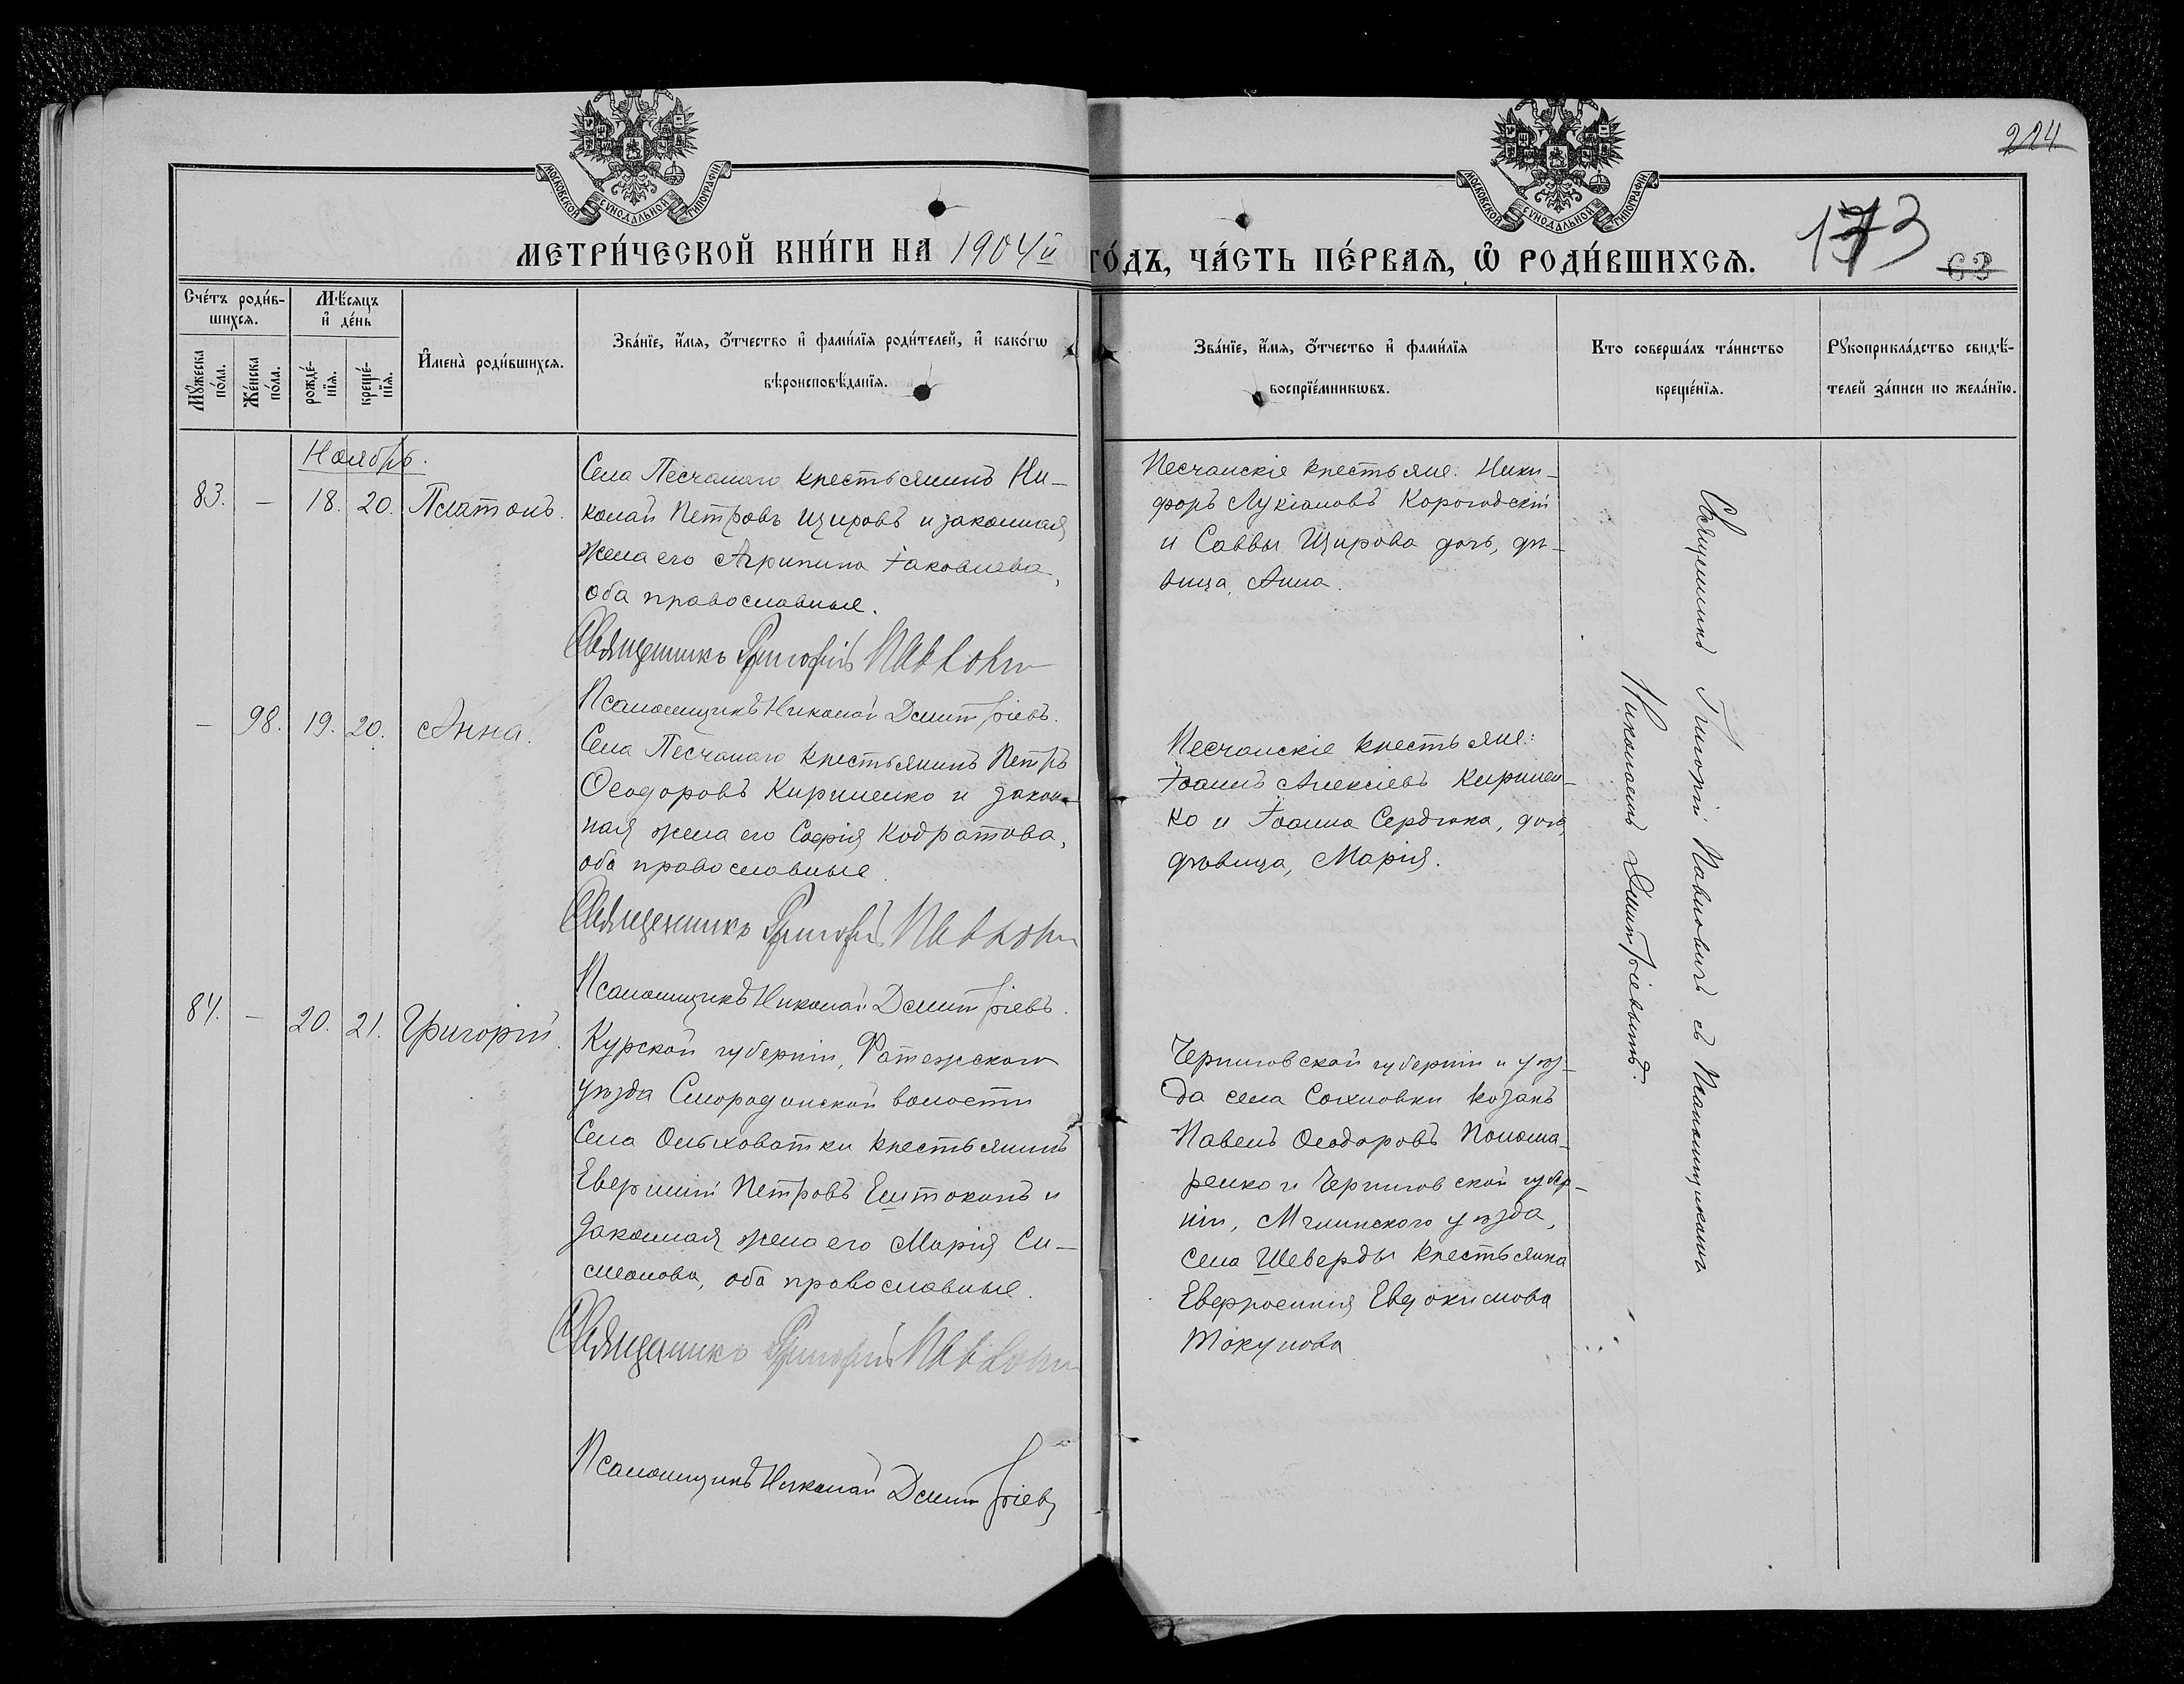 224
МОСКОВСКОЙ СѴНОДАЛЬНОЙ ТИПОГРАФІИ.
МОСКОВСКОЙ СѴНОДАЛЬНОЙ ТИПОГРАФІИ.
МЕТРИ́ЧЕСКОЙ КНИ́ГИ НА 1904й ГО́ДЪ, ЧА́СТЬ ПЕ́РВАѦ, Ѡ҆ РОДИ́ВШИХСѦ.
173
63
Сче́тъ роди́в-
шихсѧ.
Мꙋ́жеска по́ла.
Же́нска по́ла.
Мѣ́сѧцъ
и҆ де́нь
рожде́-
нїѧ.
креще́-
нїѧ.
И҆мена̀ роди́вшихсѧ.
Зва́нїе, и҆́мѧ, ѻ҆́тчество и҆ фами́лїѧ роди́телей, и҆ како́гѡ
вѣроисповѣ́данїѧ.
Зва́нїе, и҆́мѧ, ѻ҆́тчество и҆ фами́лїѧ
воспрїе́мникѡвъ.
Кто соверша́лъ та́инство
креще́нїѧ.
Рꙋкоприкла́дство свидѣ́-
телей за́писи по жела́нїю.
Ноябрь.
83. — 18. 20. Платонъ.
Села Песчанаго крестьянинъ Ни-
колай Петровъ Щировъ и законная
жена его Агрипина Іаковлева,
оба православные.
Священникъ Григорій
Псаломщикъ Николай Дмитріевъ.
Песчанскіе крестьяне: Ники-
форъ Лукіановъ Корогодскій
и Саввы Щирова дочь, дѣ-
вица, Анна.
— 98. 19. 20. Анна.
Села Песчанаго крестьянинъ Петръ
Ѳеодоровъ Кириленко и закон-
ная жена его Софія Кодратова,
оба православные.
Священникъ Григорій
Псаломщикъ Николай Дмитріевъ.
Песчанскіе крестьяне:
Іоаннъ Алексіевъ Кирилен-
ко и Іоанна Сердюка, дочь
дѣвица, Марія.
84. — 20. 21. Григорій.
Курской губерніи, Фатежскаго
уѣзда Смородинской волости
Села Ольховатки крестьянинъ
Петровъ и
законная жена его Марія Си-
меонова, оба православные.
Священникъ Григорій
Псаломщикъ Николай Дмитріевъ
Черниговской губерніи и уѣз-
да села козакъ
Павелъ Ѳеодоровъ Понома-
ренко и Черниговской губер-
ніи, Мглинскаго уѣзда,
села Шеверды крестьянка
Евфросинія Евдокимова
Токунова
Священникъ Григорій Павловичъ съ Псаломщикомъ
Николаемъ Дмитріевымъ.